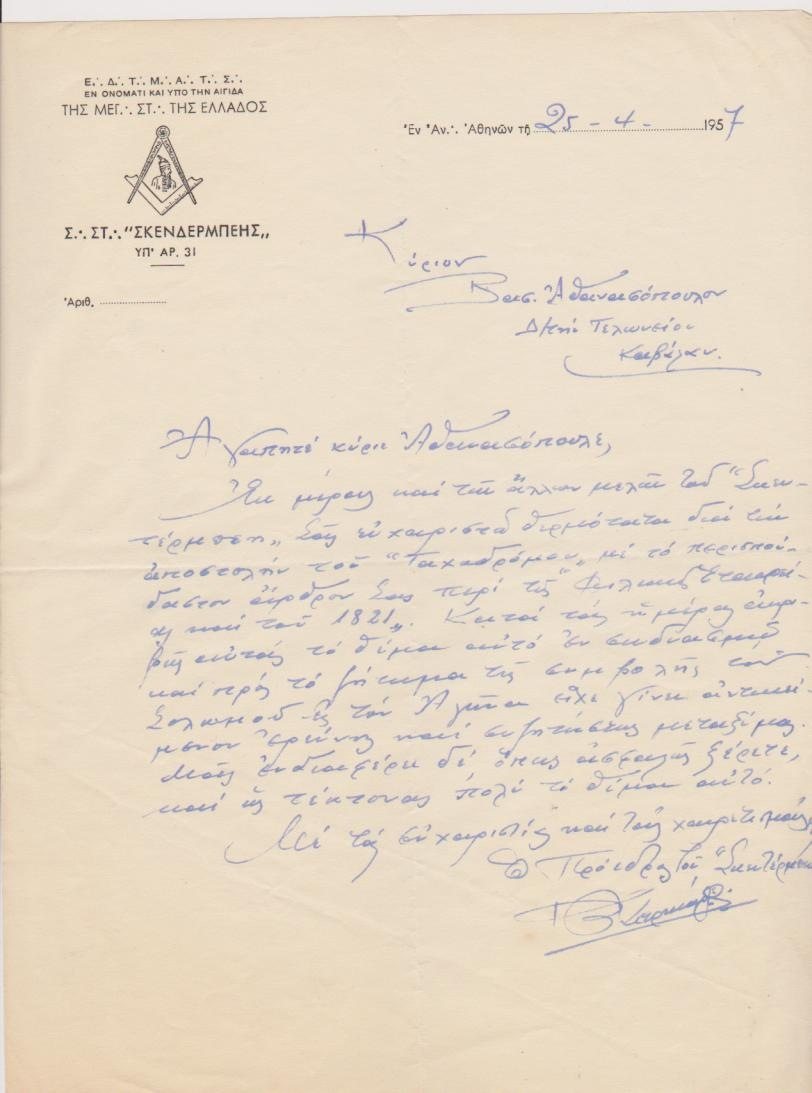 Ε.·. Δ.·. Τ.·. Μ.·. Α.·. Τ.·. Σ.·.
ΕΝ ΟΝΟΜΑΤΙ ΚΑΙ ΥΠΟ ΤΗΝ ΑΙΓΙΔΑ
ΤΗΣ ΜΕΓ.·. ΣΤ.·. ΤΗΣ ΕΛΛΑΔΟΣ
Σ.·. ΣΤ.·. "ΣΚΕΝΔΕΡΜΠΕΗΣ„
ΥΠ' ΑΡ. 31
Ἀριθ.
Ἐν Ἀν.·. Ἀθηνῶν τῇ 25 - 4 - 1957
Κύριον
Βασ. Ἀθανασόπουλον
Δ/τήν Τελωνείου
Καβάλαν.
Ἀγαπητέ κύριε Ἀθανασόπουλε,
Ἐκ μέρους καί τῶν ἄλλων μελῶν τοῦ "Σκεν-
τέρμπεη„ Σᾶς εὐχαριστῶ θερμότατα διά τήν
ἀποστολήν τοῦ "Ταχυδρόμου„ μέ τό περισπού-
δαστον ἄρθρον Σας περί τῆς "Φιλικῆς Ἑταιρεί-
ας καί τοῦ 1821„. Κατά τάς ἡμέρας ἀκρι-
βῶς αὐτάς τό θέμα αὐτό ἐν συνδυασμῷ
καί πρός τό ζήτημα τῆς συμβολῆς τοῦ
Σολωμοῦ εἰς τόν Ἀγῶνα εἶχε γίνει ἀντικεί-
μενον ἐρεύνης καί συζητήσεως μεταξύ μας.
Μᾶς ἐνδιαφέρει δέ ὅπως ἀσφαλῶς ξέρετε,
καί ὡς τέκτονας πολύ τό θέμα αὐτό.
Μέ τάς εὐχαριστίας καί τούς χαιρετισμούς
Ὁ Πρόεδρος τοῦ "Σκεντέρμπεη